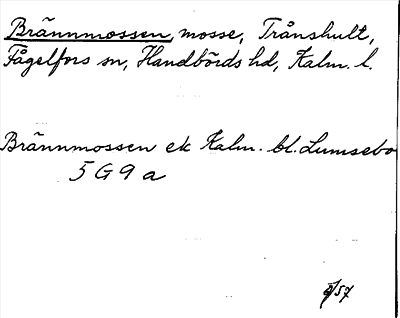 Brännmossen, mosse, Trånshult,
Fågelfors sn, Handbörds hd, Kalm. l.
Brännmossen ek Kalm. bl. Lumsebo
5 G 9 a
/57